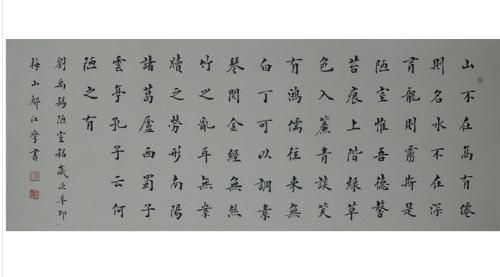 山不在高有僊
則名水不在深
有龍則靈斯是
陋室惟吾德馨
苔痕上階綠草
色入簾青談笑
有鴻儒往來無
白丁可以調素
琴閱金經無絲
竹之亂耳無案
牘之勞形南陽
諸葛廬西蜀子
雲亭孔子云何
陋之有
劉禹錫陋室銘歲次辛卯
梅山鄒江書